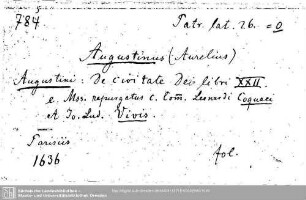 784
Patr. lat. 26. = 0
Augustinus (Aurelius)
Augustini: De civitate Dei libri XXII
e Mss. repurgatus c. Com. Leonardi Coquaei
et Jo. Lud. Vivis.
Parisiis
1636
fol.